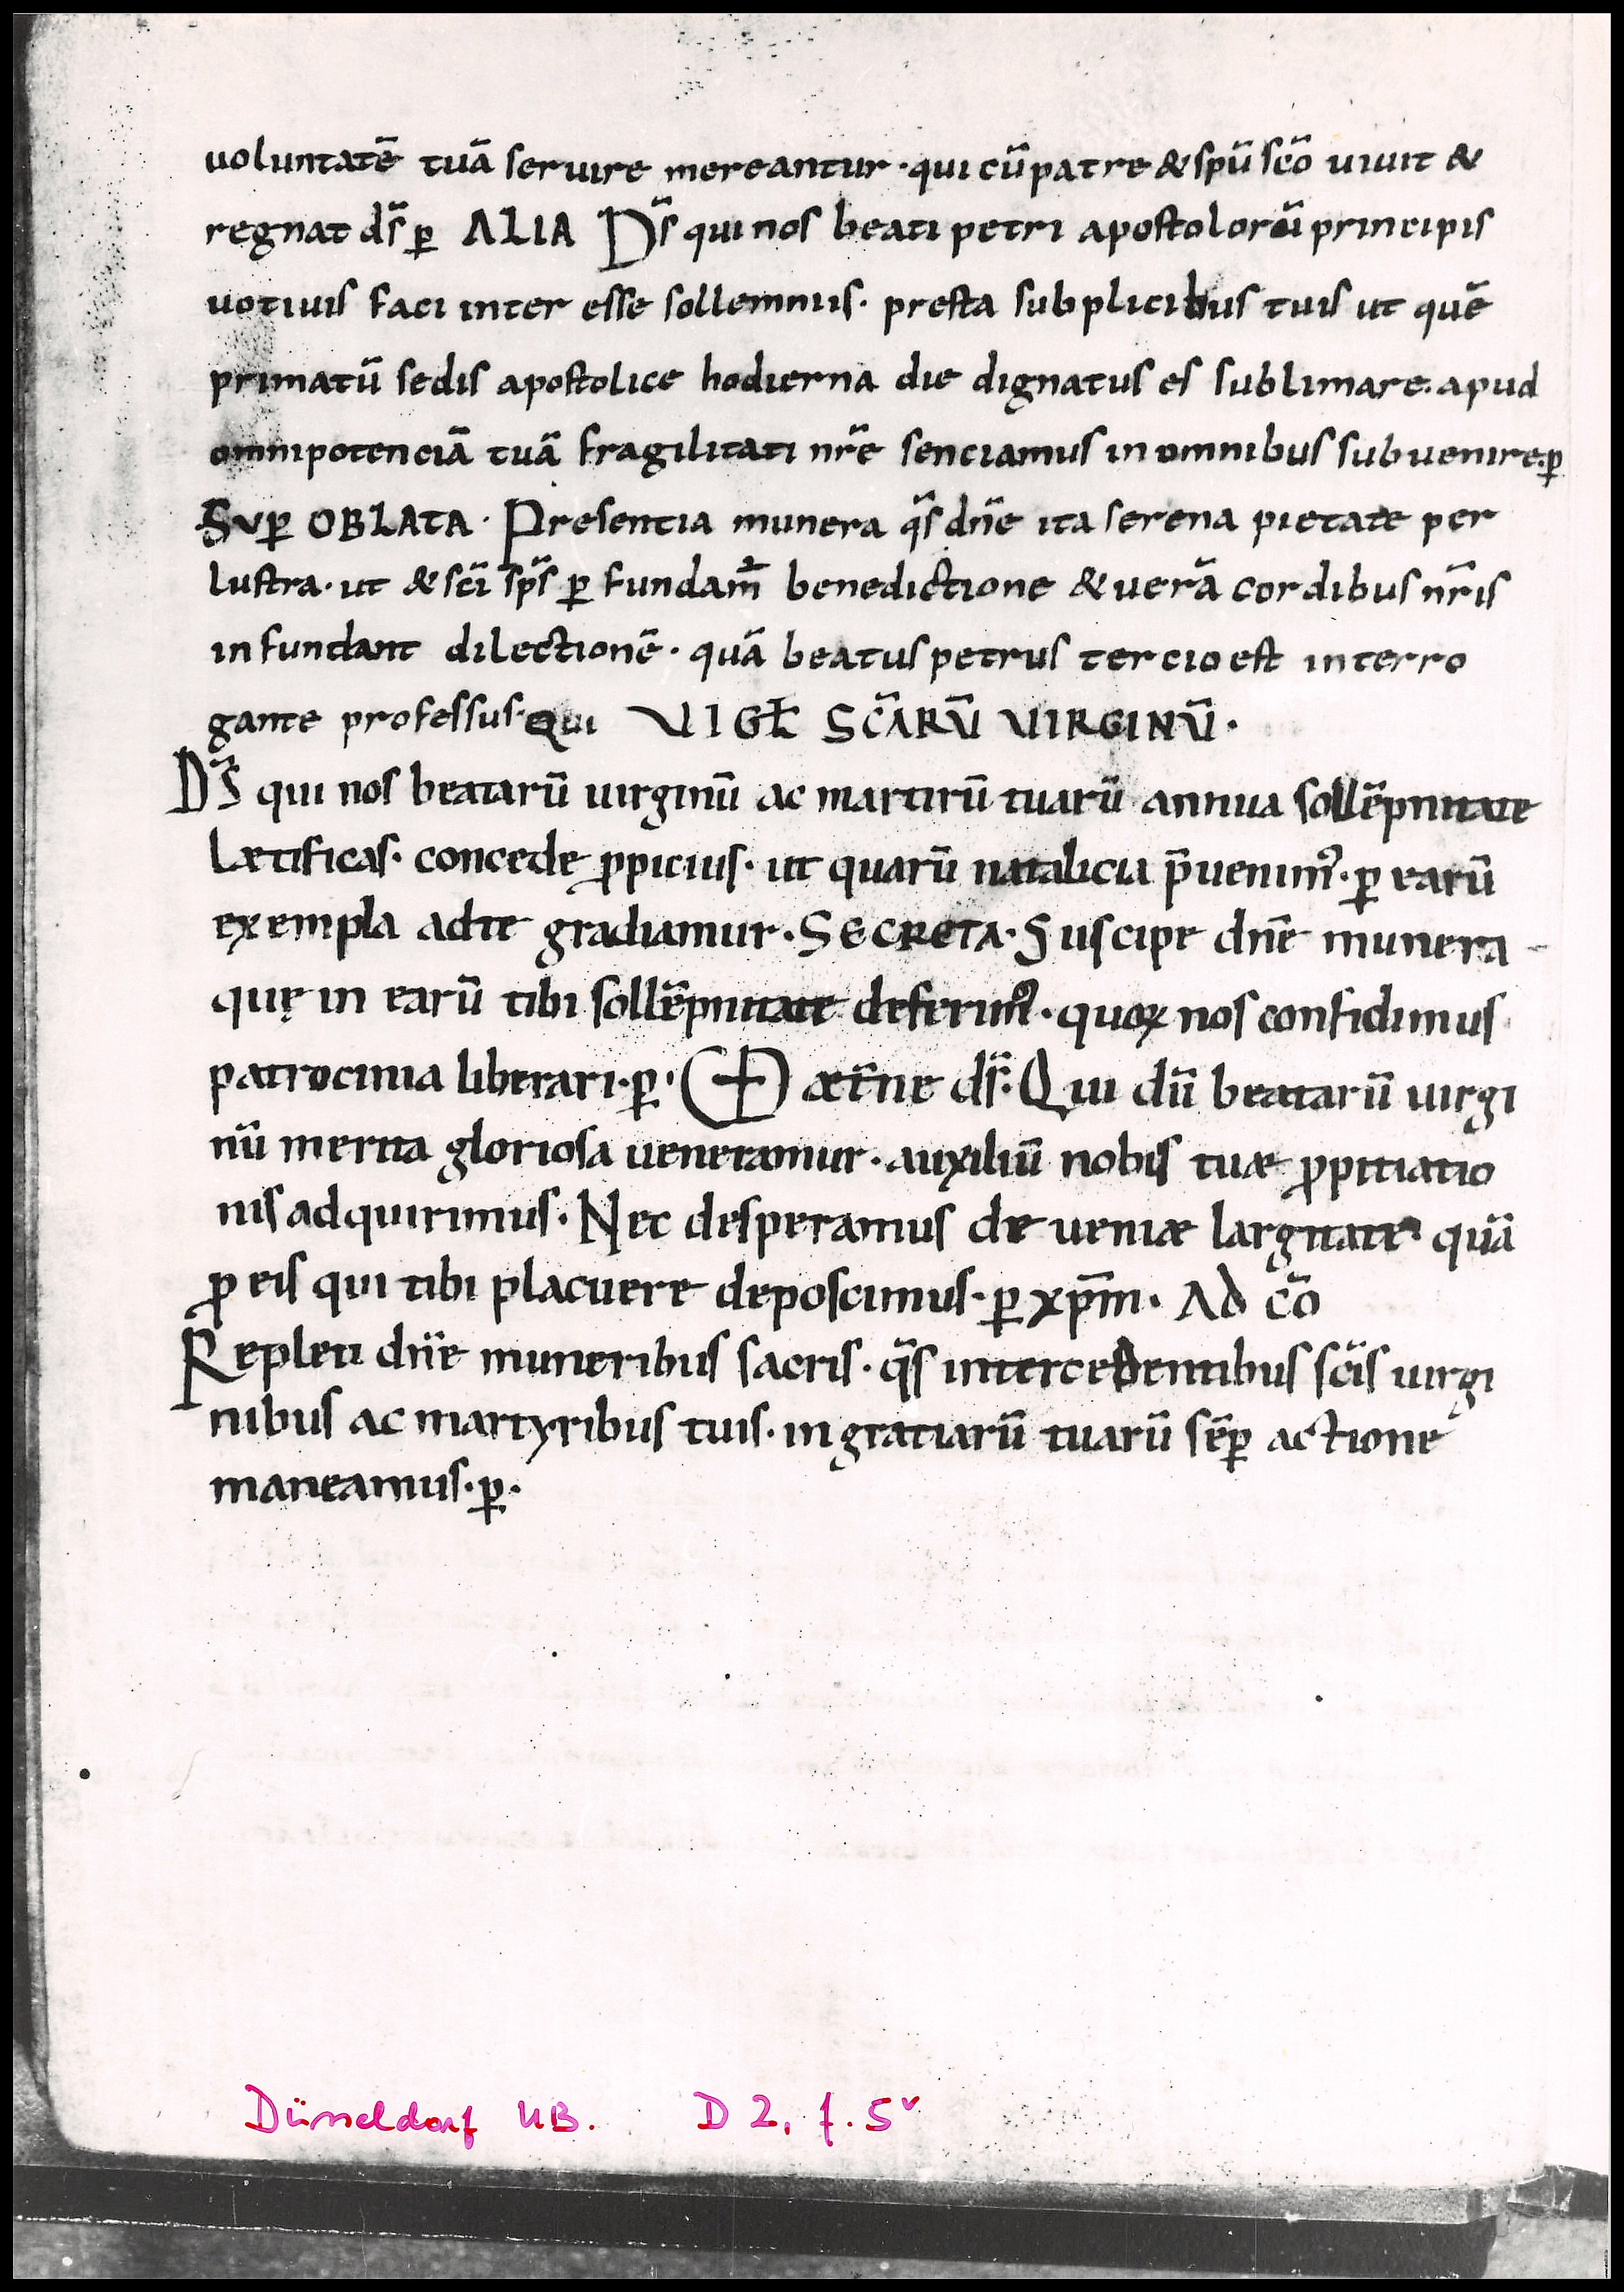 uoluntatē tuā seruire mereantur · qui cū patre & spū sc̄o uiuit &
regnat ds̄ ꝑ ALIA Ds̄ qui nos beati petri apostolorū principis
uotiuis faci inter esse sollemniis · presta subplicibus tuis ut quē
primatū sedis apostolice hodierna die dignatus es sublimare. apud
omnipotenciā tuā fragilitati nr̄e senciamus in omnibus subuenire. ꝑ
SUꝑ OBLATA · Presentia munera qs̄ dn̄e ita serena pietate per
lustra · ut & sc̄i sp̄s ꝑ fundam̄ benedictione & uerā cordibus nr̄is
infundant dilectionē · quā beatus petrus tercio est interro
gante professus · Qui VIGƚ SC̄ARŪ VIRGINŪ ·
Ds̄ qui nos beatarū uirginū ac martirū tuarū annua sollēpnitate
lætificas · concede ꝓpicius · ut quarū natalicia p̄uenim᾽ · ꝑ earū
exempla adte gradiamur · SECRETA · Suscipe dn̄e munera
quę in earū tibi sollēpnitate deferim᾽ · quoꝝ nos confidimus
patrocinia liberari · ꝑ · VD æt̄ne ds̄ · Qui dū beatarū uirgi
nū merita gloriosa ueneramur · auxiliū nobis tuæ ꝓpitiatio
nis adquirimus · Nec desperamus de ueniæ largitate quā
ꝓ eis qui tibi placuere deposcimus · ꝑ xp̄m · AD CŌ
Repleti dn̄e muneribus sacris · qs̄ intercedentibus sc̄is uirgi
nibus ac martyribus tuis · in gratiarū tuarū sēꝑ actione
maneamus · ꝑ ·
Düsseldorf UB. D 2, f. 5ᵛ